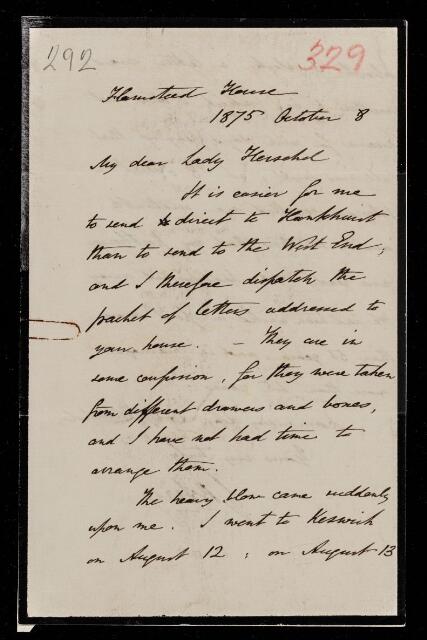 292
329
Flamsteed House
1875 October 8
My dear Lady Herschel
It is easier for me
to send direct to Hawkhurst
than to send to the West End;
and I therefore dispatch the
packet of letters addressed to
your house. – They are in
some confusion, for they were taken
from different drawers and boxes,
and I have not had time to
arrange them.
The heavy blow came suddenly
upon me. I went to Keswick
on August 12 ; on August 13